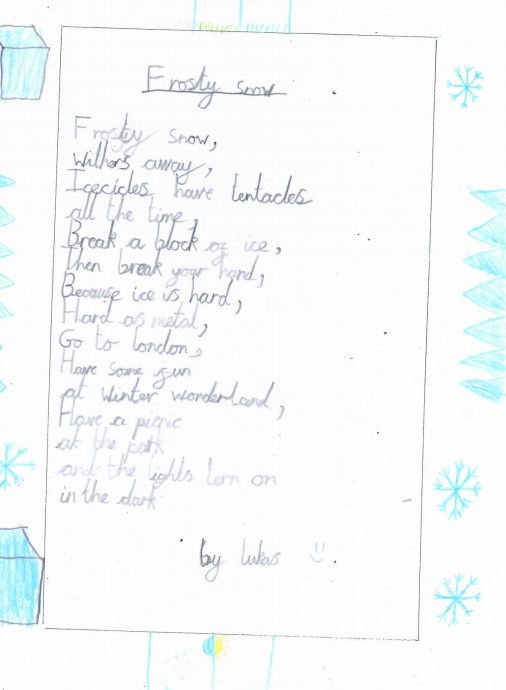 Frosty snow
Frosty snow,
withers away,
Icecicles have tentacles
all the time,
Break a block of ice,
then break your hand,
Because ice is hard,
Hard as metal,
Go to london,
Have some fun
at winter wonderland,
Have a picnic
at the park
and the lights torn on
in the dark
by lukas